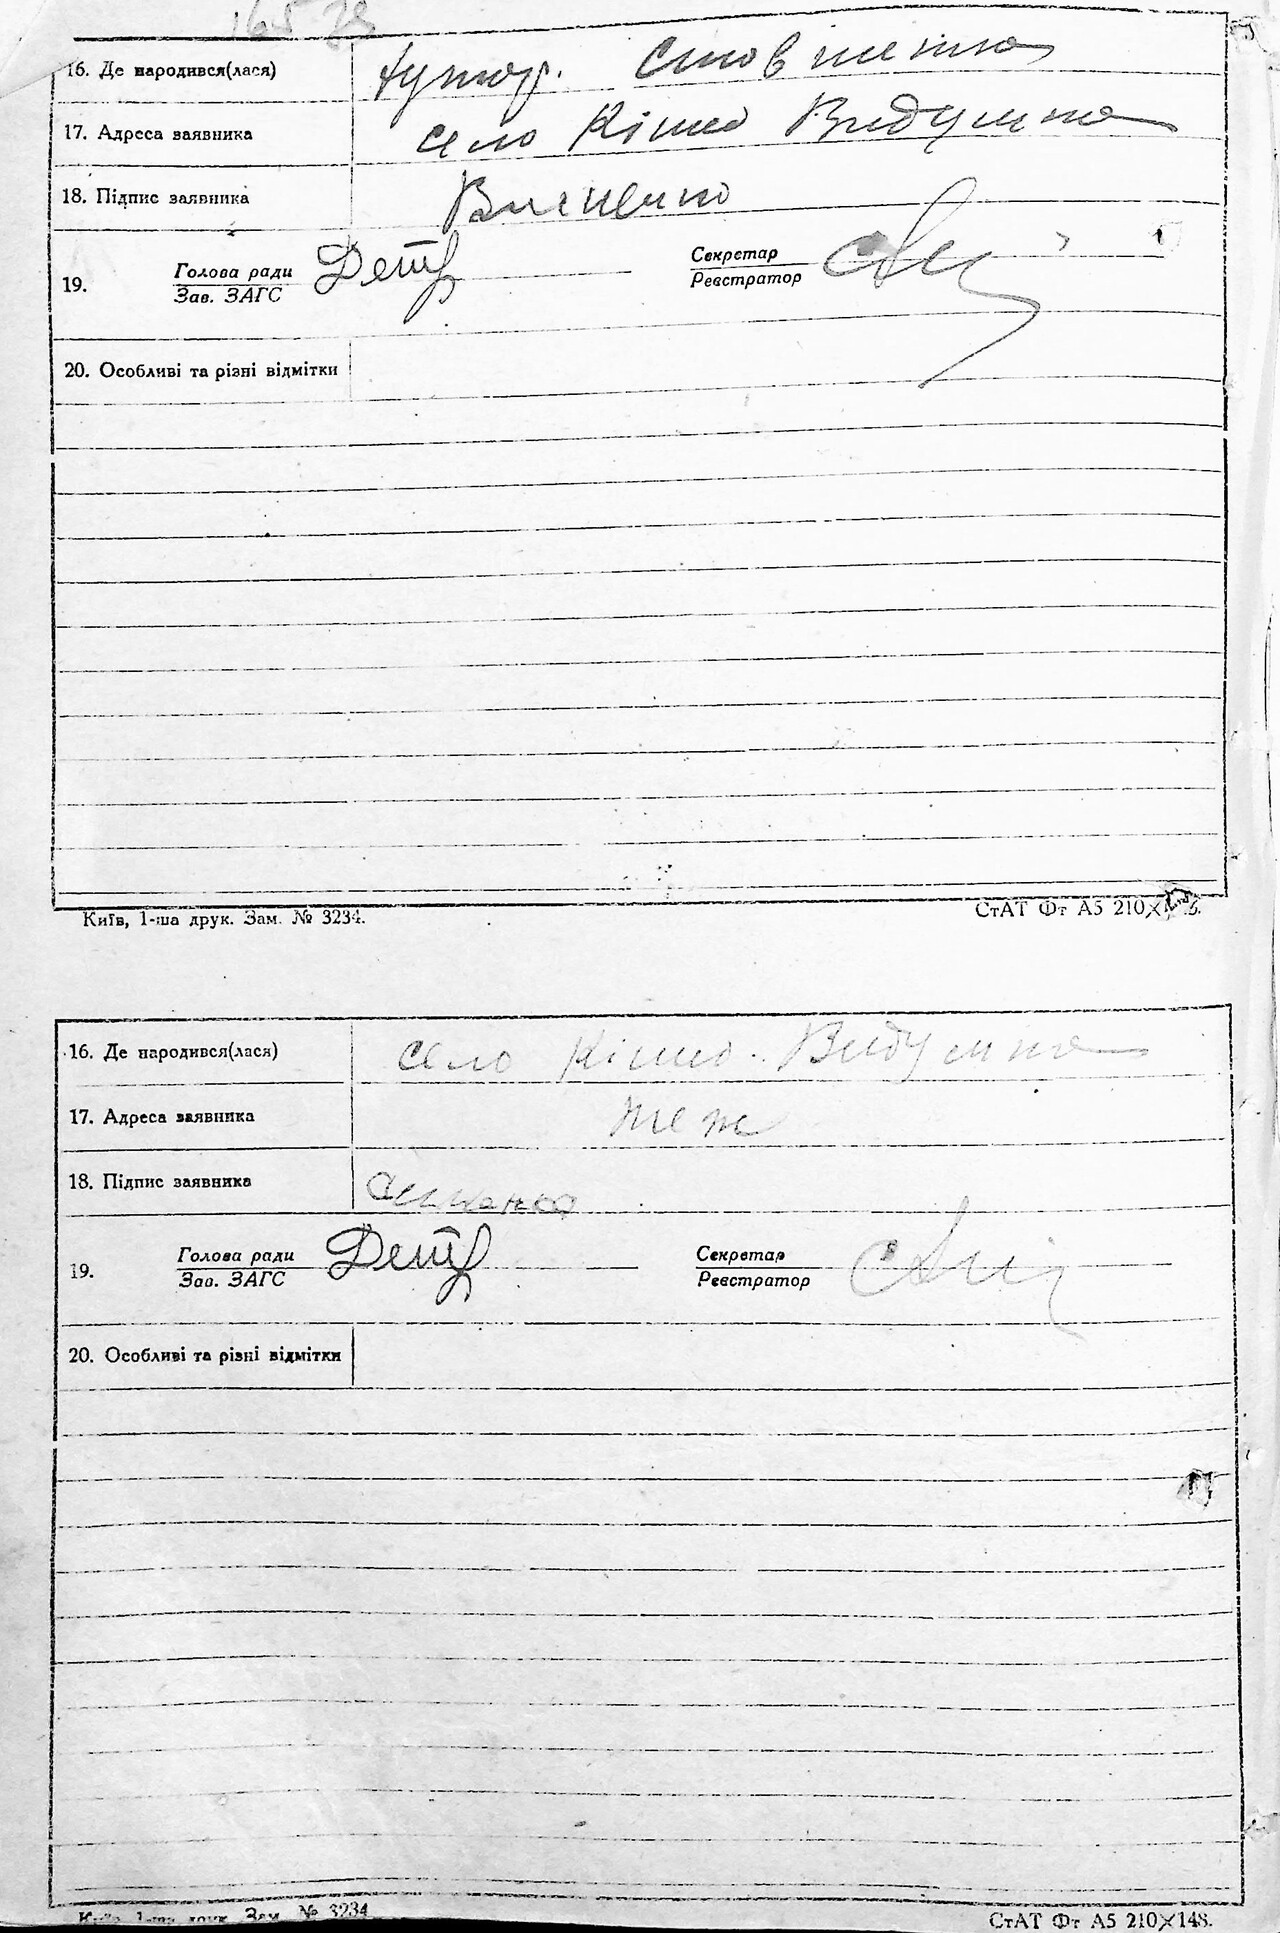 16. Де народився(лася) хутор.
17. Адреса заявника село Кішо Видумка
18. Підпис заявника
19. Голова ради Секретар
Зав. ЗАГС Реєстратор
20. Особливі та різні відмітки
Київ, 1-ша друк. Зам. № 3234. СтАТ Фт А5 210×
16. Де народився(лася) село Кішо Видумка
17. Адреса заявника теж
18. Підпис заявника
19. Голова ради Секретар
Зав. ЗАГС Реєстратор
20. Особливі та різні відмітки
Київ, 1-ша друк. Зам. № 3234 СтАТ Фт А5 210×148.